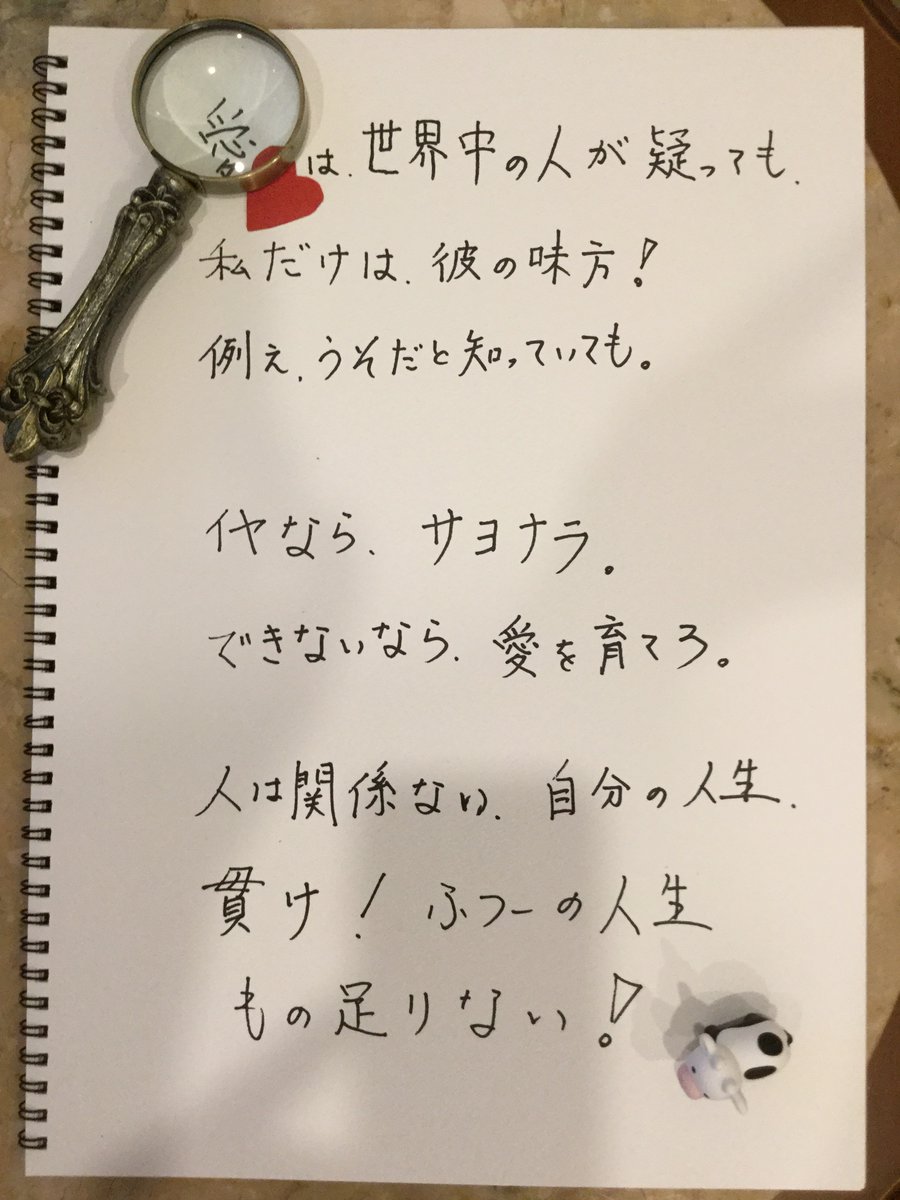 愛は、世界中の人が疑っても、
私だけは、彼の味方!
例え、うそだと知っていても。
イヤなら、サヨナラ。
できないなら、愛を育てろ。
人は関係ない、自分の人生、
貫け! ふつーの人生
もの足りない!